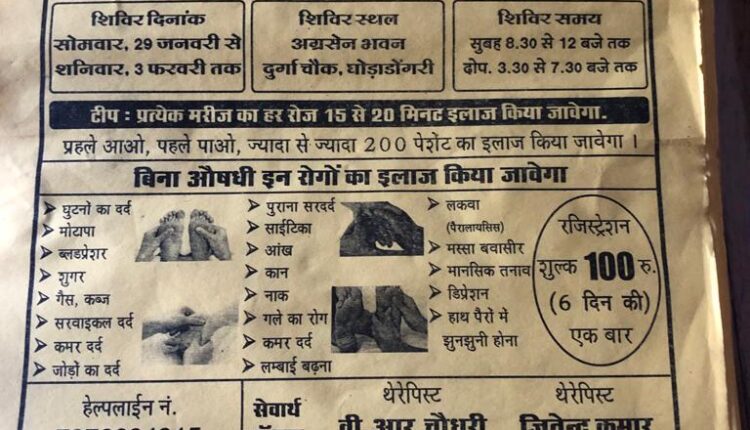 शिविर दिनांक
सोमवार, 29 जनवरी से
शनिवार, 3 फरवरी तक
शिविर स्थल
अग्रसेन भवन
दुर्गा चौक, घोड़ाडोंगरी
शिविर समय
सुबह 8.30 से 12 बजे तक
दोप. 3.30 से 7.30 बजे तक
टीप : प्रत्येक मरीज का हर रोज 15 से 20 मिनट इलाज किया जावेगा.
प्रहले आओ, पहले पाओ, ज्यादा से ज्यादा 200 पेशेंट का इलाज किया जावेगा ।
बिना औषधी इन रोगों का इलाज किया जावेगा
घुटनों का दर्द
मोटापा
ब्लडप्रेशर
शुगर
गैस, कब्ज
सरवाइकल दर्द
कमर दर्द
जोड़ो का दर्द
पुराना सरदर्द
साईटिका
आंख
कान
नाक
गले का रोग
कमर दर्द
लम्बाई बढ़ना
लकवा
(पैरालायसिस)
मस्सा बवासीर
मानसिक तनाव
डिप्रेशन
हाथ पैरों में
झुनझुनी होना
रजिस्ट्रेशन
शुल्क 100 रु.
(6 दिन की)
एक बार
हेल्पलाईन नं.
सेवार्थ
थेरेपिस्ट
वी. आर चौधरी
थेरेपिस्ट
जितेन्द्र कुमार